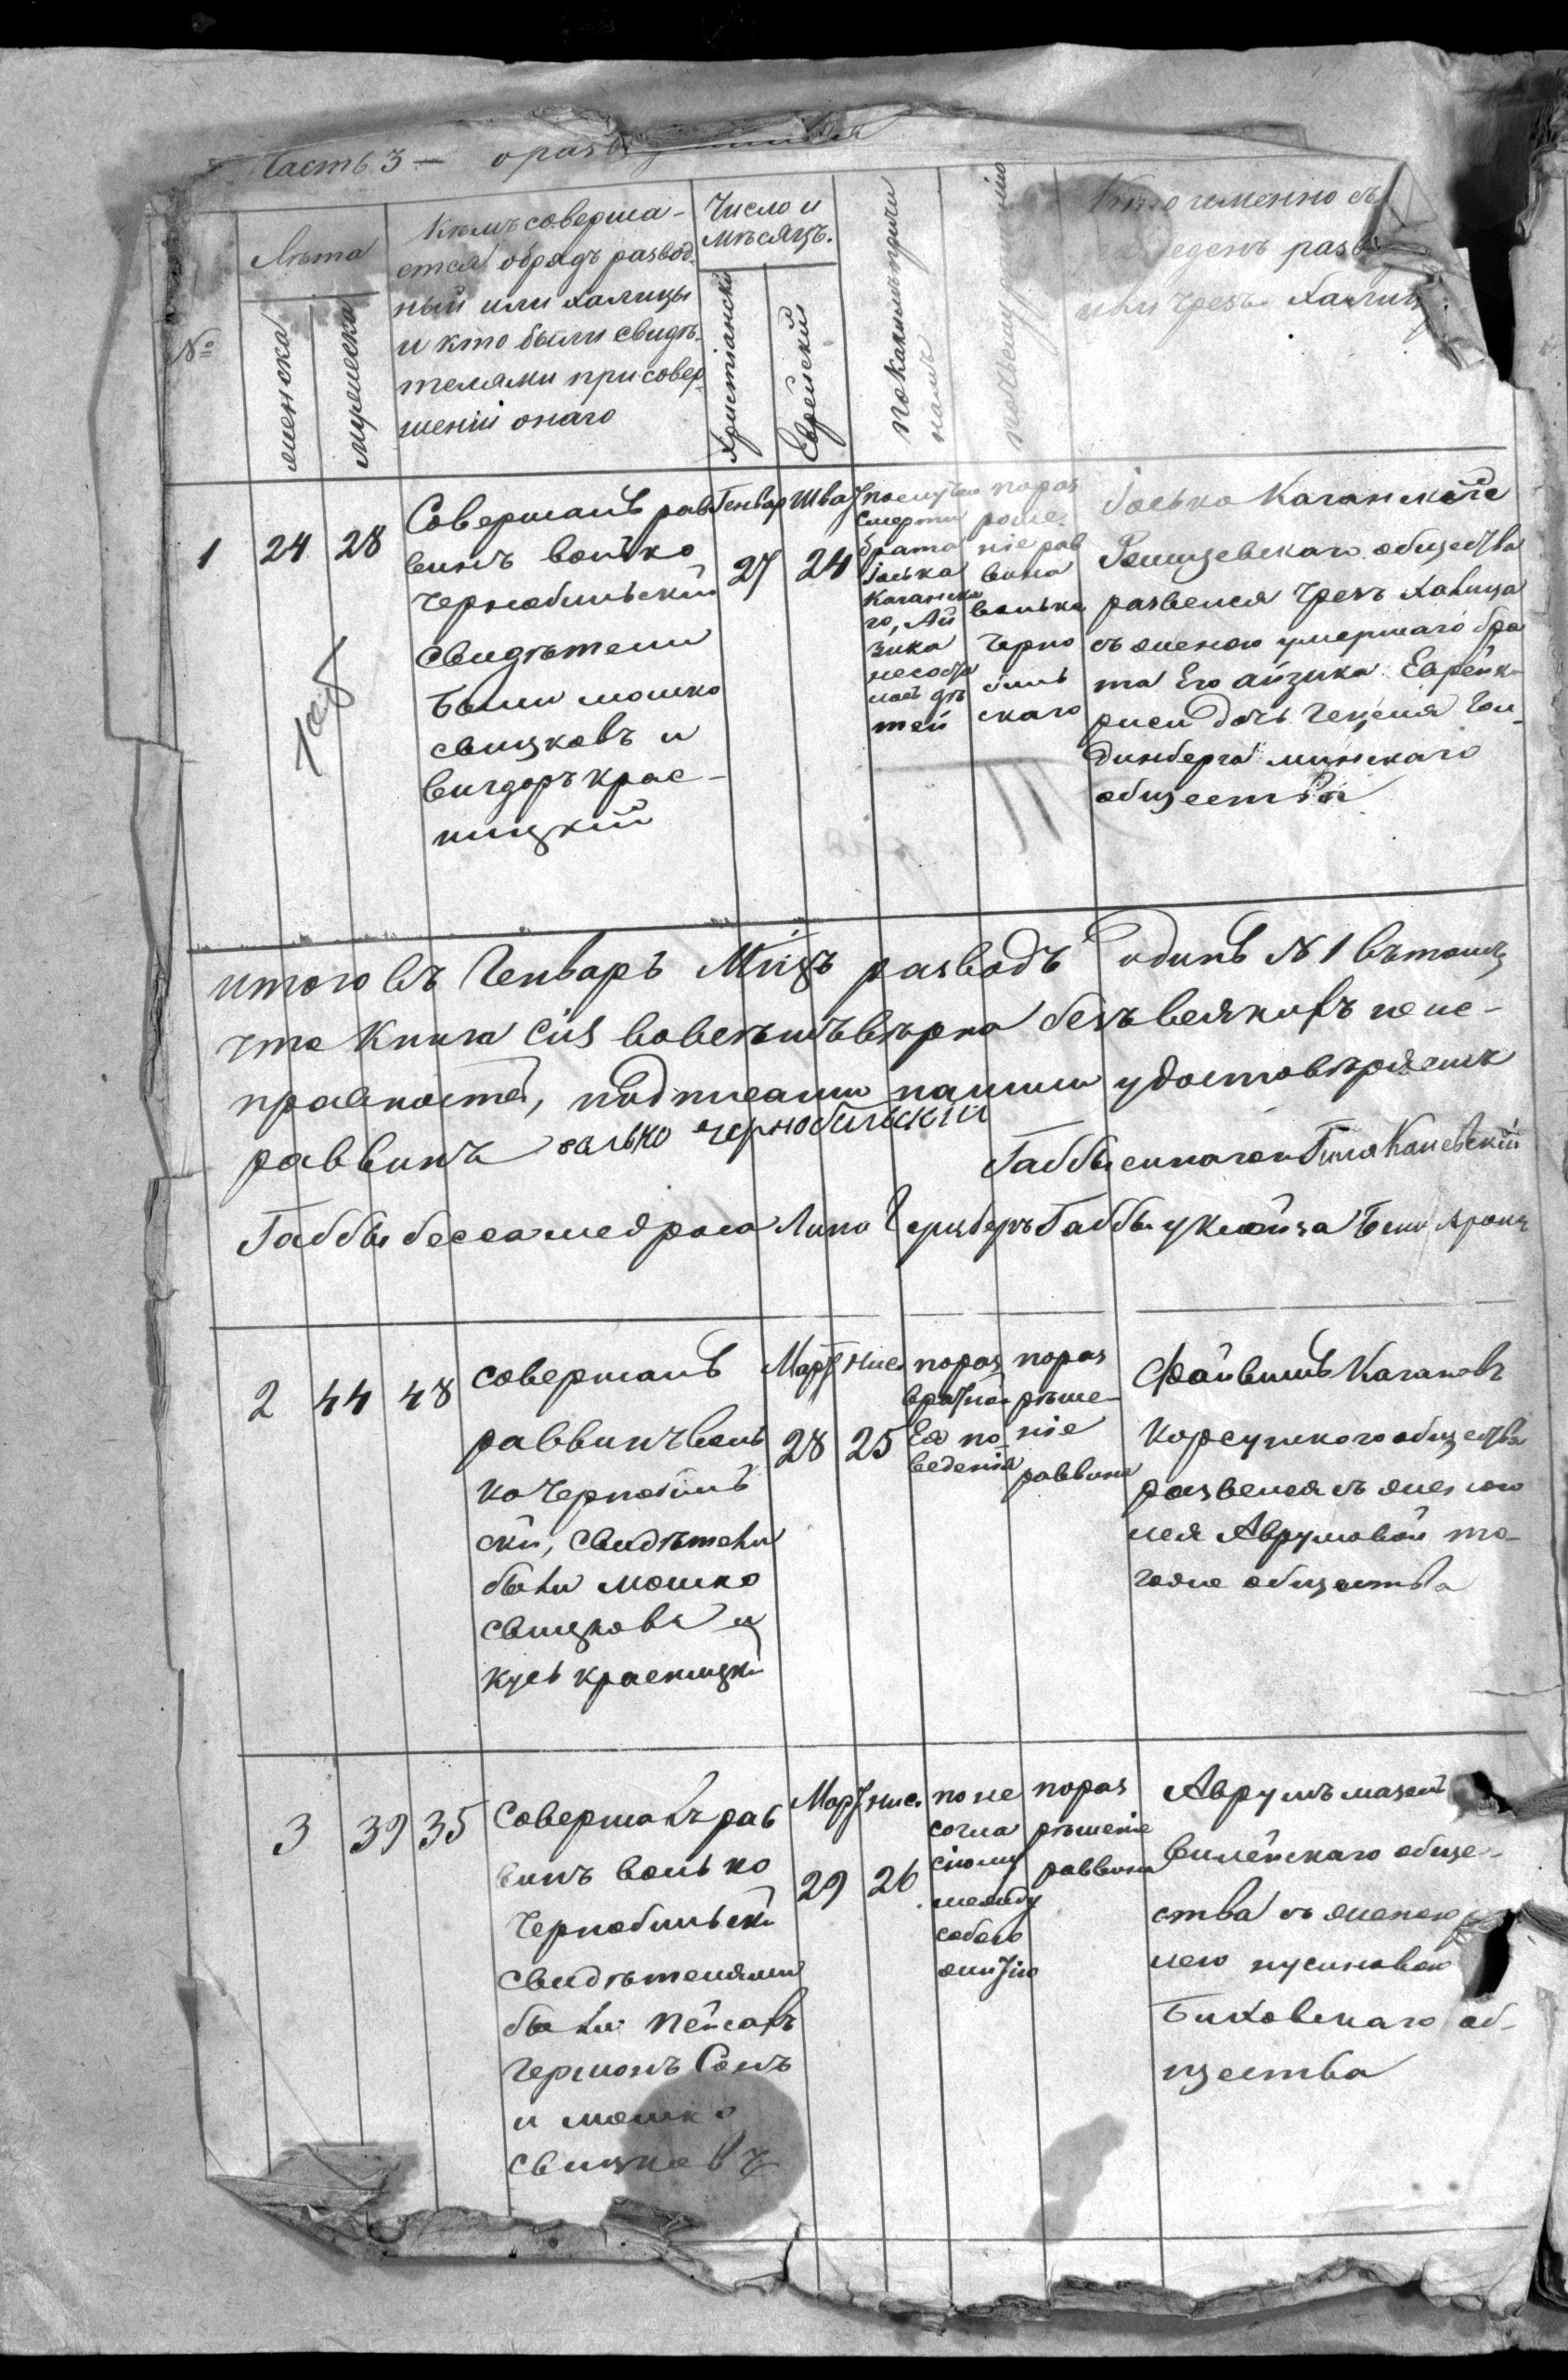 Часть 3 —
№
Лѣта
женска
мужеска
Кѣмъ соверша-
ется обрядъ развод
ный или халицы
и кто были свидѣ-
телями при совер-
шеніи онаго
Число и
мѣсяцъ.
Христіанскій
Еврейскій
по какимъ причи
намъ
Кто именно съ
разве
или чрезъ халиц
1
24
28
Совершалъ рав
винъ волько
Чернобильскій
свидѣтели
были мошко
свицковъ и
вигдоръ крас-
ницкій
Генвар
27
Шват
24
смерти
брата
Іоська
Каганска
го, Ай
зика
неоста
лось дѣ
тей
пораз
рѣше
ніе рав
вина
волька
Черно
биль
скаго
Іосько Каганский
общества
развелся чрезъ халица
съ женою умершаго бра
та Его айзика
дочь
динберга минскаго
общества
итого въ Генварѣ Мцѣ разводъ одинъ № 1 въ томъ
что Книга сія вовсемъ вѣрна безъ всякихъ не ис-
правностей, подписами нашими удостовѣряемъ
раввинъ валько чернобильскій
Габбы синагоги Каневскій
Габбы бесамедроса Габбы уклойза
2
44
48
совершалъ
раввинъ воль
ко Чернобиль
скій, свидѣтели
были мошко
свицковъ и
кусь красницкі
Март
28
Нис.
25
пораз
вратном
Ея по
веденія
пораз
рѣше-
ніе
раввина
Файвишъ Кагановъ
Корсунскогообщества
развелся съ женою
лея Аврумовой то-
гоже общества
3
39
35
Совершалъ рав
винъ волько
Чернобильскі
свидѣтелями
были Пейсахъ
Гермонъ Сонъ
и мошко
свицковъ
Март
29
нис.
26
по не
согла
сіому
между
собою
житію
пораз
рѣшеніе
раввина
Аврумъ мазел
виленскаго обще-
ства съ женою
лею пусиновою
Биховскаго об-
щества